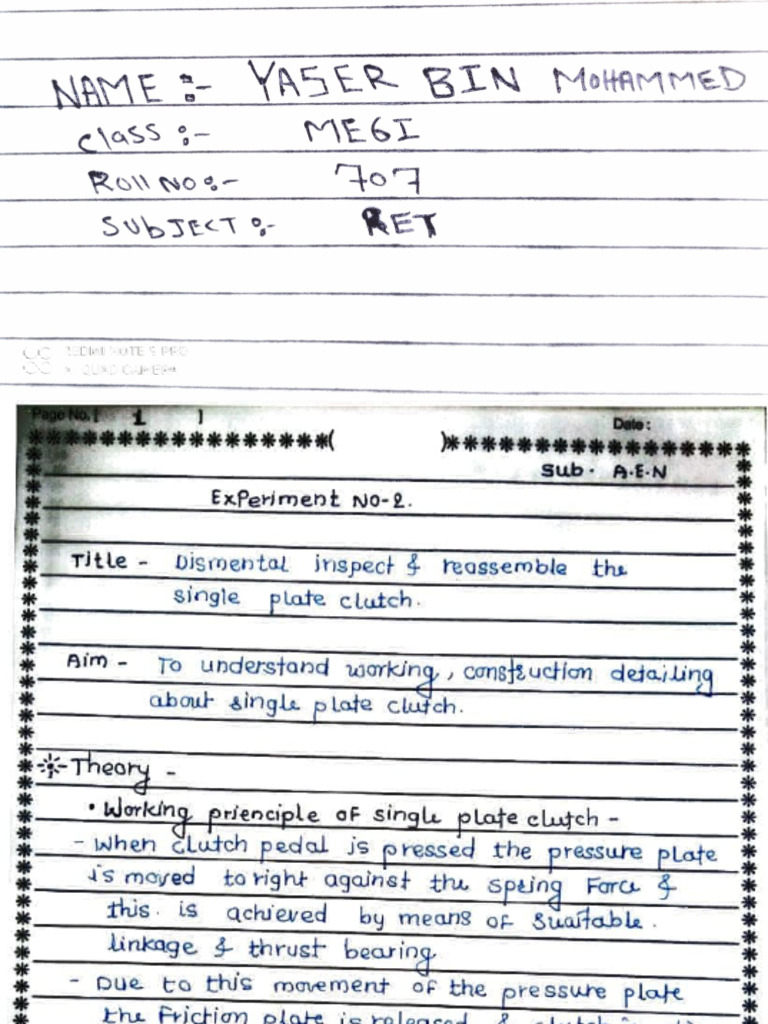 NAME :- YASER BIN MOHAMMED
Class :- ME6I
Roll NO :- 707
SUBJECT :- RET
REDMI NOTE 5 PRO
Page No. [ 1 ]
Date :
Sub. A.E.N
Experiment NO-2.
Title - Dismental inspect & reassemble the
single plate clutch.
Aim - To understand working, construction detailing
about single plate clutch.
Theory -
• Working prienciple of single plate clutch -
- When clutch pedal is pressed the pressure plate
is moved to right against the spring Force &
this. is achieved by means of suaitable.
linkage & thrust bearing
- Due to this movement of the pressure plate
the Friction plate is released &